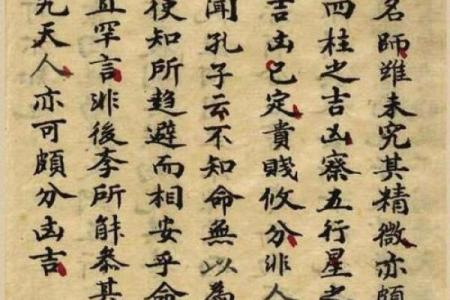 名師雖未究其精微亦頗
四柱之吉凶察五行星之
吉凶已定貴賤攸分非人
聞孔子云不知命無以為
使知所趨避而相安乎命
直罕言非後李所能叅其
究天人亦可頗分凶吉